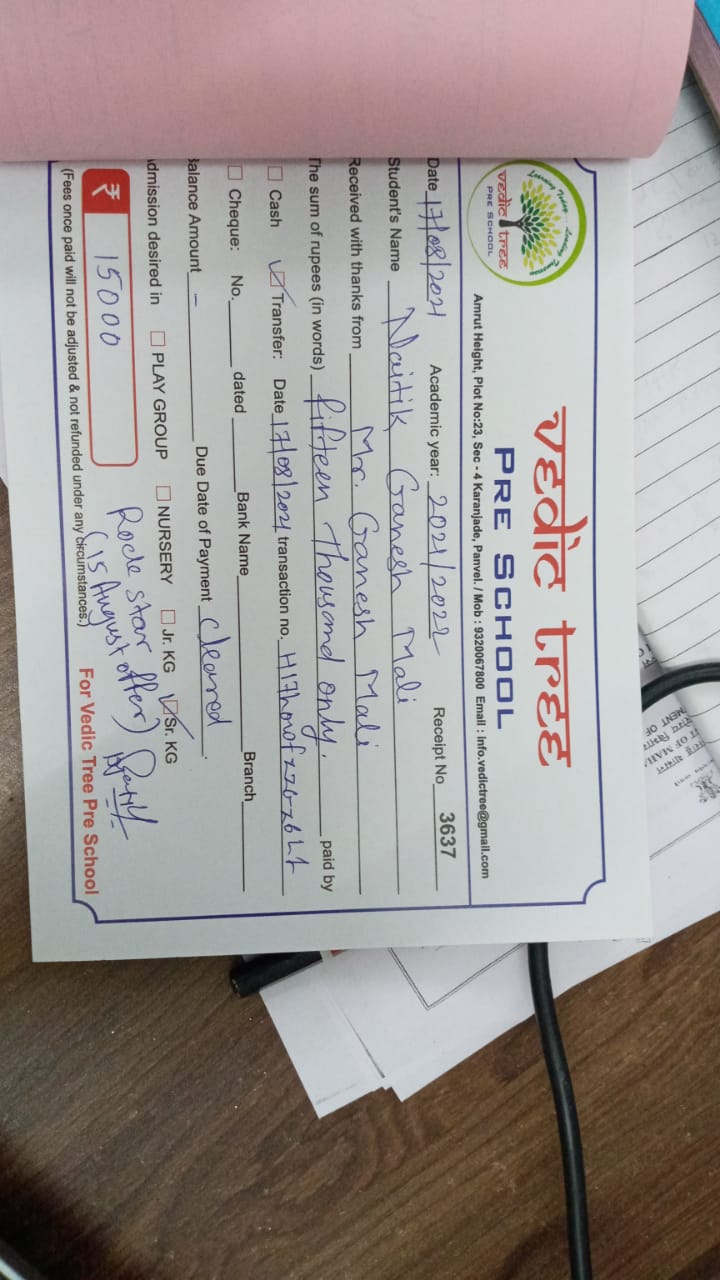 Learning Today... Leading Tomorrow
vedic tree
PRE SCHOOL
vedic tree
PRE SCHOOL
Amrut Height, Plot No:23, Sec - 4 Karanjade, Panvel. / Mob : 9320067800 Email : Info.vedictree@gmail.com
Date 17/08/2021 Academic year: 2021/2022 Receipt No 3637
Student's Name Naitik Ganesh Mali
Received with thanks from Mr. Ganesh Mali
The sum of rupees (in words) fifteen thousand only. paid by
Cash Transfer: Date 17/08/2021 transaction no.
Cheque: No. dated Bank Name Branch
Balance Amount - Due Date of Payment Cleared
Admission desired in PLAY GROUP NURSERY Jr. KG Sr. KG
₹ 15000
Rock star
(15 August offer)
(Fees once paid will not be adjusted & not refunded under any circumstances.)
For Vedic Tree Pre School